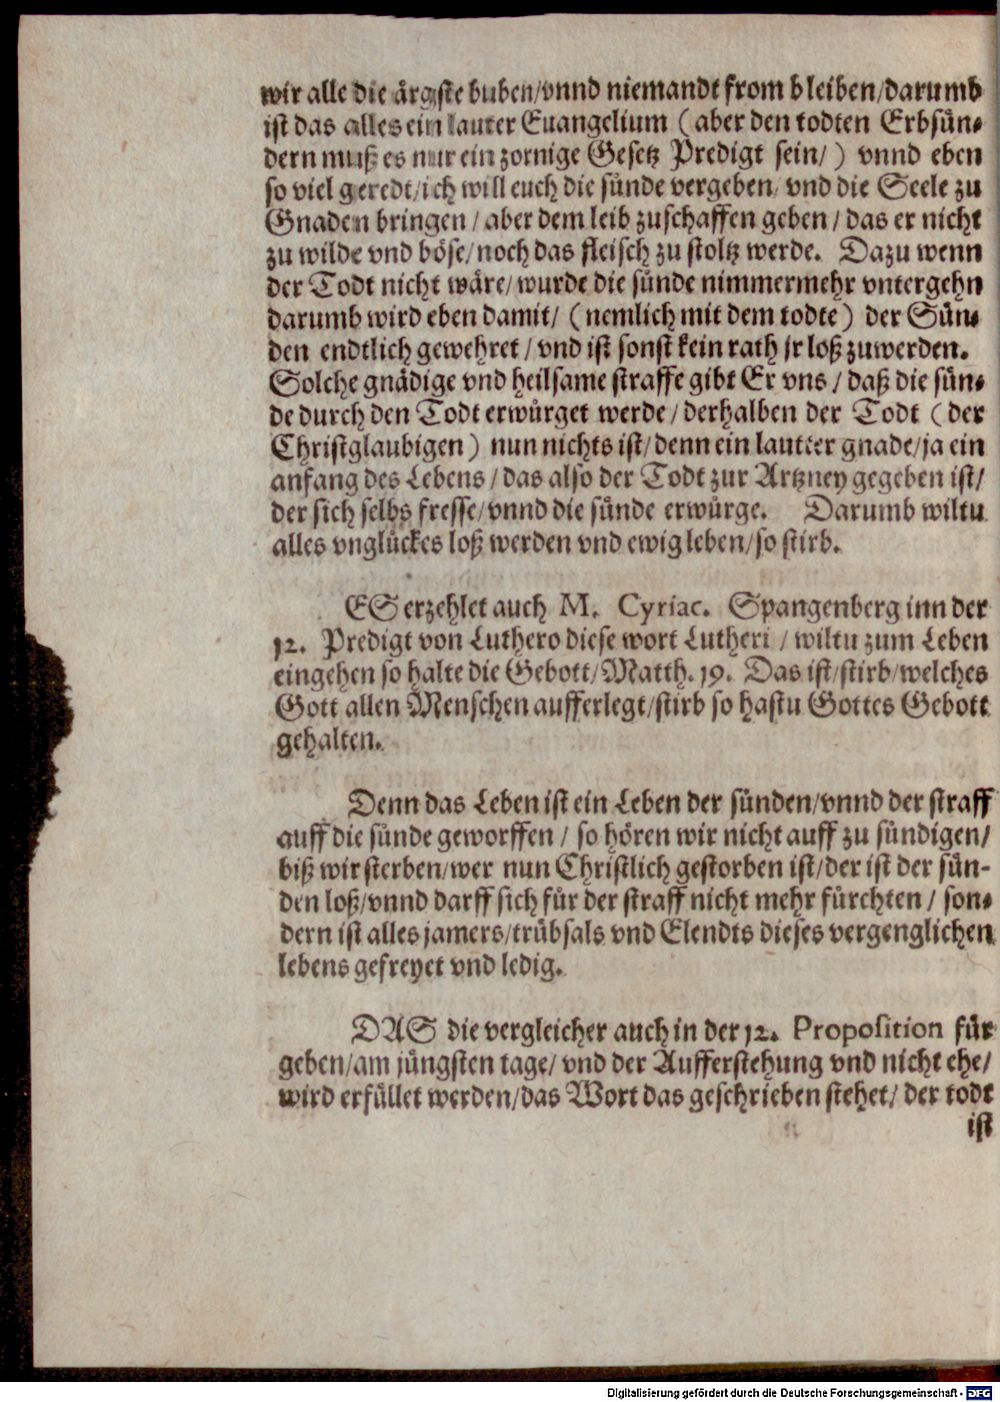 wir alle die ärgste buben/vnnd niemandt from bleiben/darumb
ist das alles ein lauter Euangelium (aber den todten Erbsün-
dern muß es nur ein zornige Gesetz Predigt sein/) vnnd eben
so viel geredt/ich will euch die sünde vergeben/vnd die Seele zu
Gnaden bringen/aber dem leib zuschaffen geben/das er nicht
zu wilde vnd böse/noch das fleisch zu stoltz werde. Dazu wenn
der Todt nicht wäre/wurde die sünde nimmermehr vntergehn
darumb wird eben damit/(nemlich mit dem todte) der Sün-
den endtlich gewehret/vnd ist sonst kein rath jr loß zuwerden.
Solche gnädige vnd heilsame straffe gibt Er vns/daß die sün-
de durch den Todt erwürget werde/derhalben der Todt (der
Christglaubigen) nun nichts ist/denn ein lautter gnade/ja ein
anfang des Lebens/das also der Todt zur Artzney gegeben ist/
der sich selbs fresse/vnnd die sünde erwürge. Darumb wiltu
alles vnglückes loß werden vnd ewig leben/so stirb.
ES erzehlet auch M. Cyriac. Spangenberg inn der
12. Predigt von Luthero diese wort Lutheri/wiltu zum Leben
eingehen so halte die Gebott/Matth. 19. Das ist/stirb/welches
Gott allen Menschen aufferlegt/stirb so hastu Gottes Gebott
gehalten.
Denn das Leben ist ein Leben der sünden/vnnd der straff
auff die sünde geworffen/so hören wir nicht auff zu sündigen/
biß wir sterben/wer nun Christlich gestorben ist/der ist der sün-
den loß/vnnd darff sich für der straff nicht mehr fürchten/son-
dern ist alles jamers/trübsals vnd Elendts dieses vergenglichen
lebens gefreyet vnd ledig.
DAS die vergleicher auch in der 12. Proposition für
geben/am jüngsten tage/vnd der Aufferstehung vnd nicht ehe/
wird erfüllet werden/das Wort das geschrieben stehet/der todt
ist
Digitalisierung gefördert durch die Deutsche Forschungsgemeinschaft - DFG